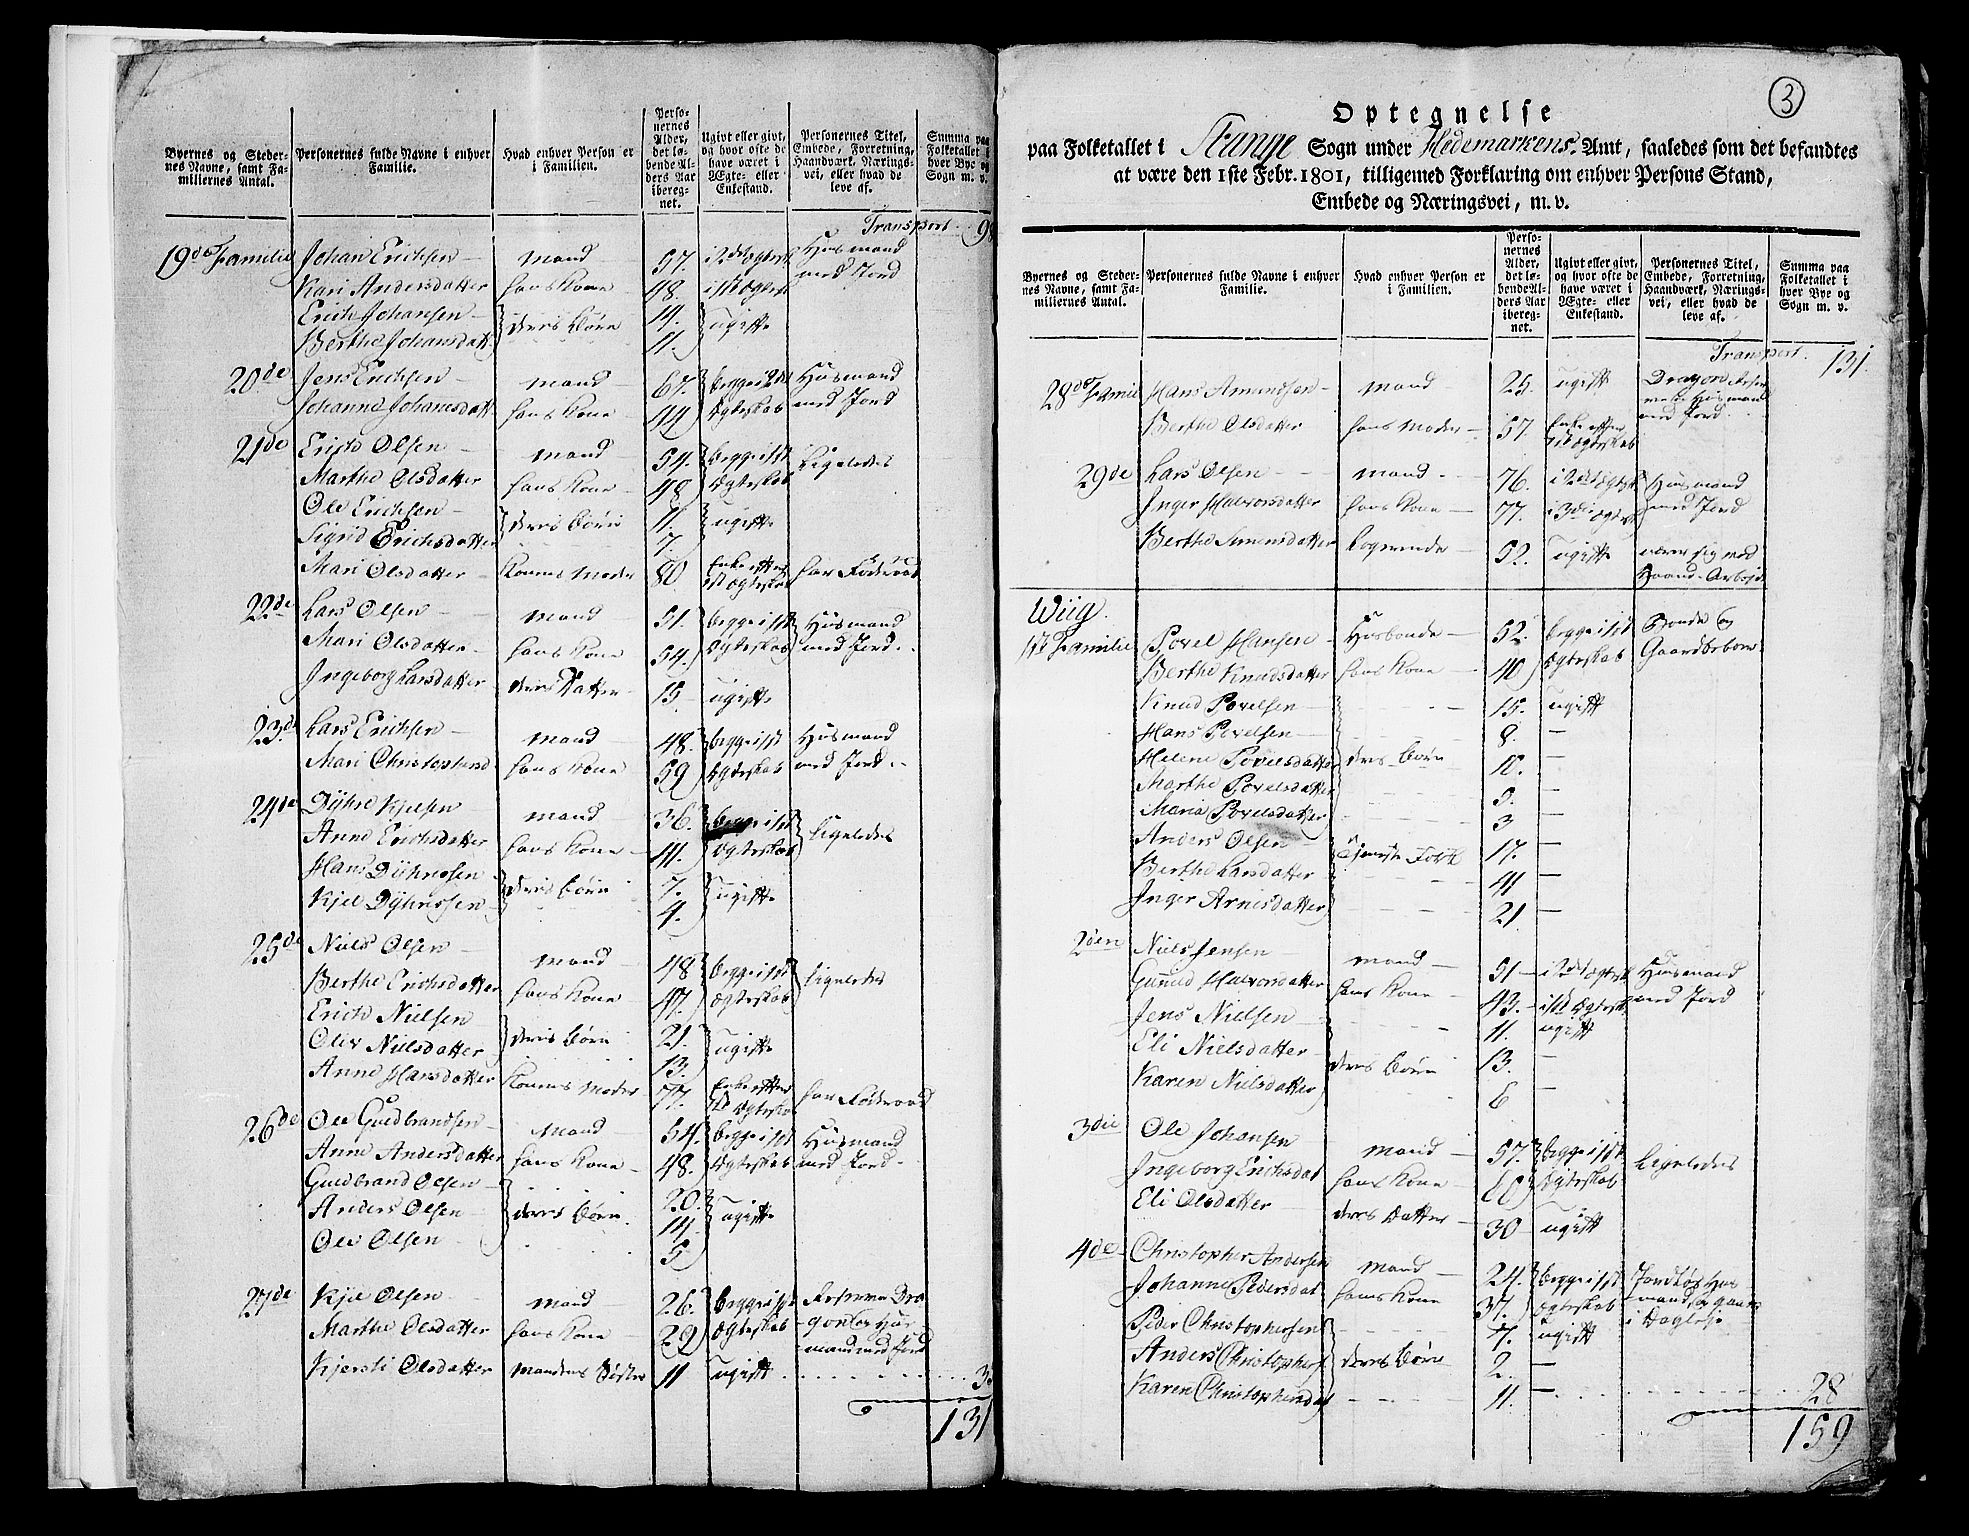 Byernes og Steder-
nes Navne, samt Fa-
miliernes Antal.
Personernes fulde Navne i enhver
Familie.
Hvad enhver Person er
i Familien.
Perso-
nernes
Alder,
det lø-
bende Al-
ders Aar
ibereg-
net.
Ugivt eller givt,
og hvor ofte de
have været i
Ægte- eller
Enkestand.
Personernes Titel,
Embede, Forretning,
Haandværk, Nærings-
vei, eller hvad de
leve af.
Summa paa
Folketallet i
hver Bye og
Sogn m. v.
Transport 98
19de Familie Johan Erichsen mand 57. i 2det Ægtesk Huusmand
med Jord
Kari Andersdatter hans Kone 48. i 1ste Ægtesk
Erich Johansen deres Børn 14. ugifte
Berthe Johansdatt. 11.
20de Jens Erichsen mand 67. begge i 2det Huusmand
Johanne Johansdatt hans Kone 44 Ægteskab med Jord
21de Erich Olsen mand 54. begge i 1ste Ligeledes
Marthe Olsdatter hans Kone 48 Ægteskab
Ole Erichsen deres Børn 11. ugifte
Sigrid Erichsdatter 7.
Mari Olsdatter Konens Moder 80 Enke efter har Føderaad
1ste Ægteskab
22de Lars Olsen mand 51. begge i 1ste Huusmand
Mari Olsdatter hans Kone 54. Ægteskab med Jord.
Ingeborg Larsdatter deres Datter 15 ugifte
23de Lars Erichsen mand 48. begge i 1ste Huusmand
Mari Christophersd hans Kone 59 Ægteskab med Jord.
24de Dyhre Kjelsen mand 36. begge i 1ste Ligeledes
Anne Erichsdatter hans Kone 41. Ægteskab
Hans Dyhresen deres Børn 7. ugifte
Kjel Dyhresen 4.
25de Niels Olsen mand 48 begge i 1ste Ligeledes
Berthe Erichsdatter hans Kone 47. Ægteskab
Erich Nielsen deres Børn 21. ugifte
Oliv Nielsdatter 13.
Anne Hansdatter Konens Moder 77. Enke efter har Føderaad
1ste Ægteskab
26de Ole Gudbrandsen mand 54. begge i 1ste Huusmand
Anne Andersdatter hans Kone 48. Ægteskab med Jord.
Gudbrand Olsen 20.
Anders Olsen deres Børn 14. ugifte
Ole Olsen 5
27de Kjel Olsen mand 26. begge i 1ste
Marthe Olsdatter hans Kone 29 Ægteskab
mand med Jord
Kjersti Olsdatter mandens Søster 11 ugift
131
3
Optegnelse
paa Folketallet i Stange Sogn under Hedemarkens Amt, saaledes som det befandtes
at være den 1ste Febr. 1801, tilligemed Forklaring om enhver Persons Stand,
Embede og Næringsvei, m. v.
Byernes og Steder-
nes Navne, samt Fa-
miliernes Antal.
Personernes fulde Navne i enhver
Familie.
Hvad enhver Person er
i Familien.
Perso-
nernes
Alder,
det lø-
bende Al-
ders Aar
ibereg-
net.
Ugivt eller givt,
og hvor ofte de
have været i
Ægte- eller
Enkestand.
Personernes Titel,
Embede, Forretning,
Haandværk, Nærings-
vei, eller hvad de
leve af.
Summa paa
Folketallet i
hver Bye og
Sogn m. v.
Transport. 131.
28de Familie Hans Amundsen mand 25. ugift Dragon
Huusmand
med Jord.
Berthe Olsdatter hans Moder 57. Enke efter
1ste Ægteskab
29de Lars Olsen mand 76. i 2det Ægtesk Huusmand
Inger Halvorsdatter hans Kone 77. i 3die Ægtesk med Jord
Berthe Simensdatter Logerende 52. ugifte nærer sig ved
Haand-Arbejde
Wiig.
1ste Familie Povel Hansen Huusbonde 52. begge i 1ste Bonde og
Berthe Knudsdatter hans Kone 40 Ægteskab Gaardbeboer
Knud Povelsen 15. ugift
Hans Povelsen 8. —
Helene Povelsdatter deres Børn 10. —
Marthe Povelsdatter 5. —
Maria Povelsdatter 3 —
Anders Olsen Tjeneste Folk 17. —
Berthe Larsdatter 41 —
Inger Arnesdatter 21 —
2den Niels Jensen mand 51 i 2det Ægtesk Huusmand
Gunild Halvorsdatter hans Kone 43. i 1ste Ægtesk med Jord
Jens Nielsen 11. ugift
Eli Nielsdatter deres Børn 13. —
Karen Nielsdatter 6 —
3die Ole Johansen mand 57. begge i 1ste Ligeledes
Ingeborg Erichsdat hans Kone 60 Ægteskab
Eli Olsdatter deres Datter 30 ugift
4de Christopher Andersen mand 24. begge i 1ste Jordløs Huus-
Johanne Pedersdat hans Kone 37. Ægteskab mand, og gaaer
Peder Christophersen 4. ugift i Dagleje
Anders Christophers deres Børn 2. —
Karen Christophersdat 11. — 28
159